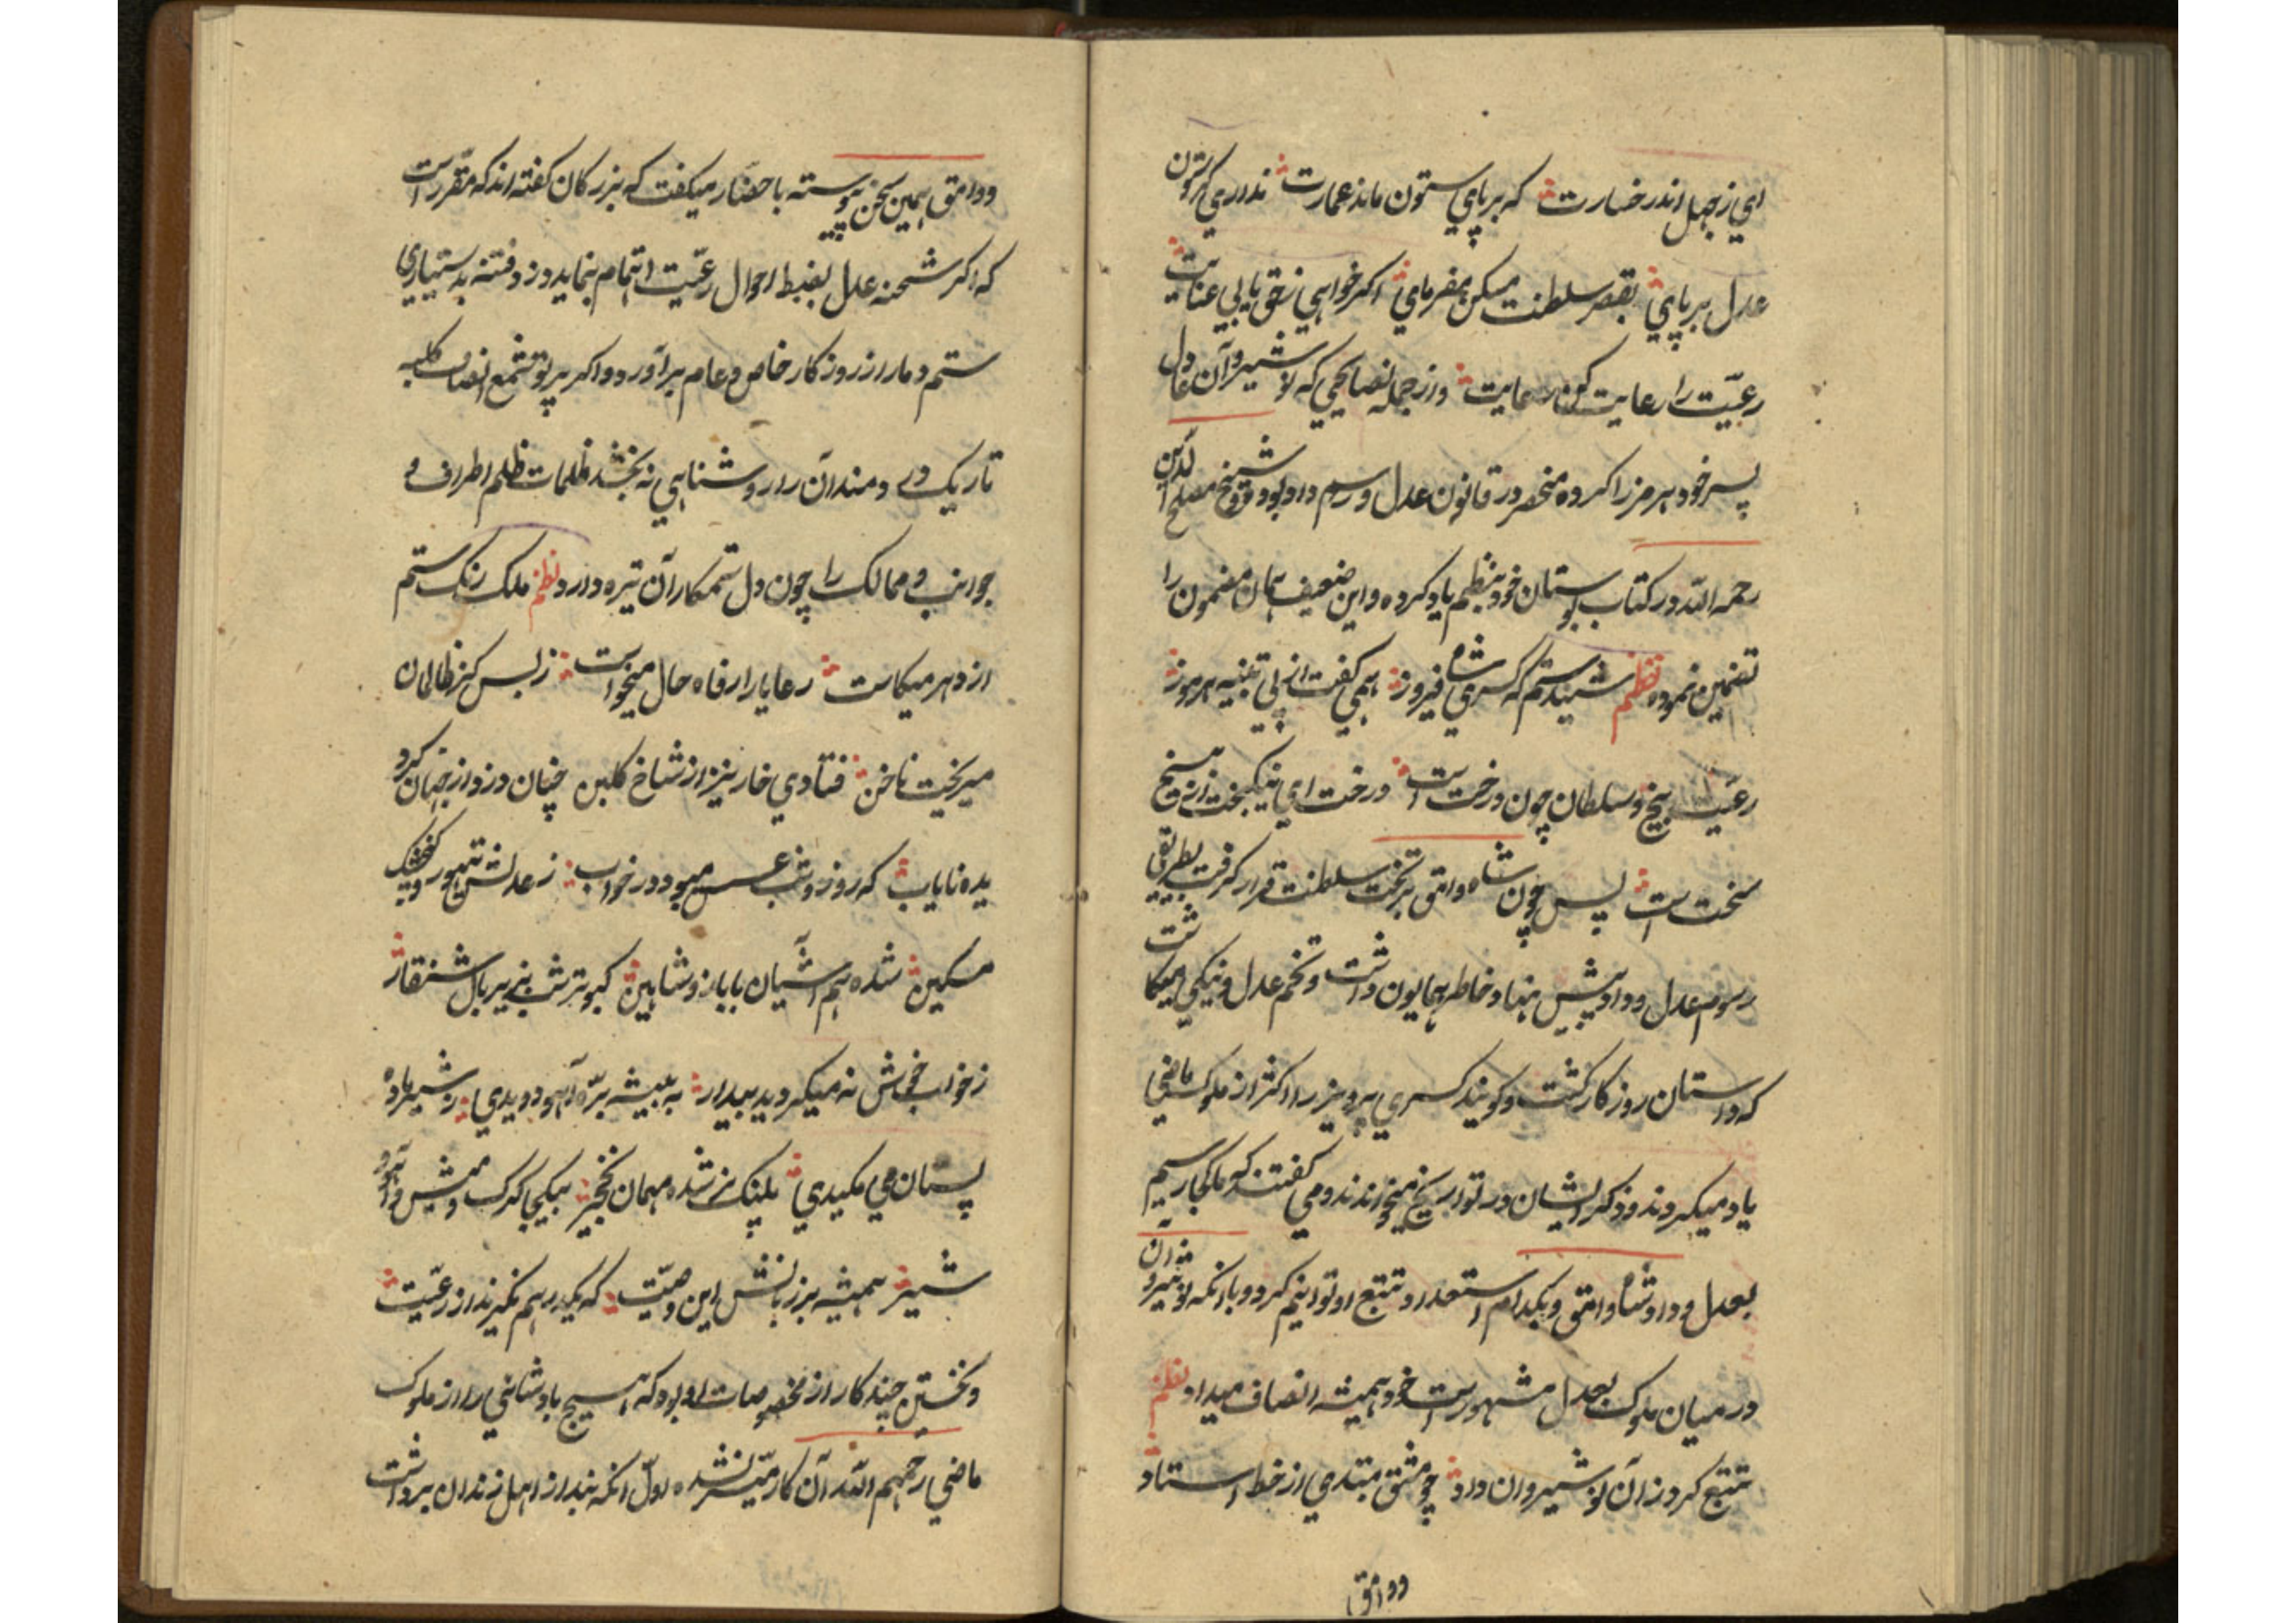 اي ز جهل اندر خسارت که بر پاي ستون ماند عمارت نداري کر ستون
عدل بر پاي بقصر سلطنت مسکن مفرماي اکر خواهي ز حق يابي عنايت
رعيّت را رعايت کن رعايت و از جمله نصايحي که نوشيروان عادل
پسر خود هرمز را کرده منحصر در قانون عدل و رسم داد بود و شيخ مصلح الدين
رحمه الله در کتاب بوستان خود بنظم ياد کرده و اين ضعيف همان مضمون را
تضمين نموده نظم شنيدستم که کسري شاه فيروز همي کفت از پي تنبيه هرمز
رعيّت بيخ و سلطان چون درختست درخت اي نيکبخت از بيخ
سختست پس چون شاه وامق بر تخت سلطنت قرار کرفت بطريق
رسوم عدل و داد پيش نهاد خاطر همايون داشت و تخم عدل و نيکي ميکاشت
که داستان روزکار کشت و کويند کسري پرويز را اکثر از ملوک ماضي
ياد ميکردند و ذکر ايشان در تواريخ ميخواندند و مي کفتند که ملکا رسم
بعدل و داد شاه وامق و بکدام استعداد و تتبع او توانيم کرد و با انکه نوشيروان
در ميان ملوک بعدل مشهورست خود هميشه انصاف ميداد نظم
تتبع کرد زان نوشيروان داد چو مشق مبتدي از خط استاد
و وامق
و وامق همين سخن پيوسته باحضار ميکفت که بزرکان کفته اند که مقرّر است
که اکر شحنه عدل بضبط احوال رعيّت اهتمام ننمايد دزد فتنه بدستياري
ستم دمار از روزکار خاص و عام برآورد و اکر پرتو شمع انصاف کلبه
تاريک دردمندان را روشنايي نه بخشد ظلمات ظلم اطراف و
جوانب و ممالک را چون دل ستمکاران تيره دارد نظم ملک رنک ستم
از دهر ميکاست رعايا را رفاه حال ميخواست ز بس کز ظالمان
ميريخت ناخن فتادي خار نيز از شاخ کلبن چنان دزد از جهان کرد
يده ناياب که روز و شب عسس ميبود در خواب ز عدلش تيهو و کنجشک
مسکين شده هم آشيان با باز و شاهين کبوتر شب بزير بال شنقار
ز خواب خوش نه ميکرديد بيدار به بيشه برّه آهو دويدي ز شير ماده
پستان مي مکيدي پلنک نر شده مهمان نخجير بيکجا کرک و ميش و آهو و
شير هميشه بر زبانش اين وصيّت که يکدرهم نکيرند از رعيّت
و نخستين چند کار از مخصوصات او بود که هيچ پادشاهي را از ملوک
ماضي رحمهم الله آن کار ميّسر نشده اوّل انکه بند از اهل زندان برداشت